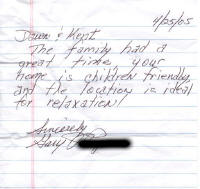 4/25/05
Dawn & Kent
The family had a
great time, your
home is children friendly,
and the location is ideal
for relaxation!
Sincerely
Gary